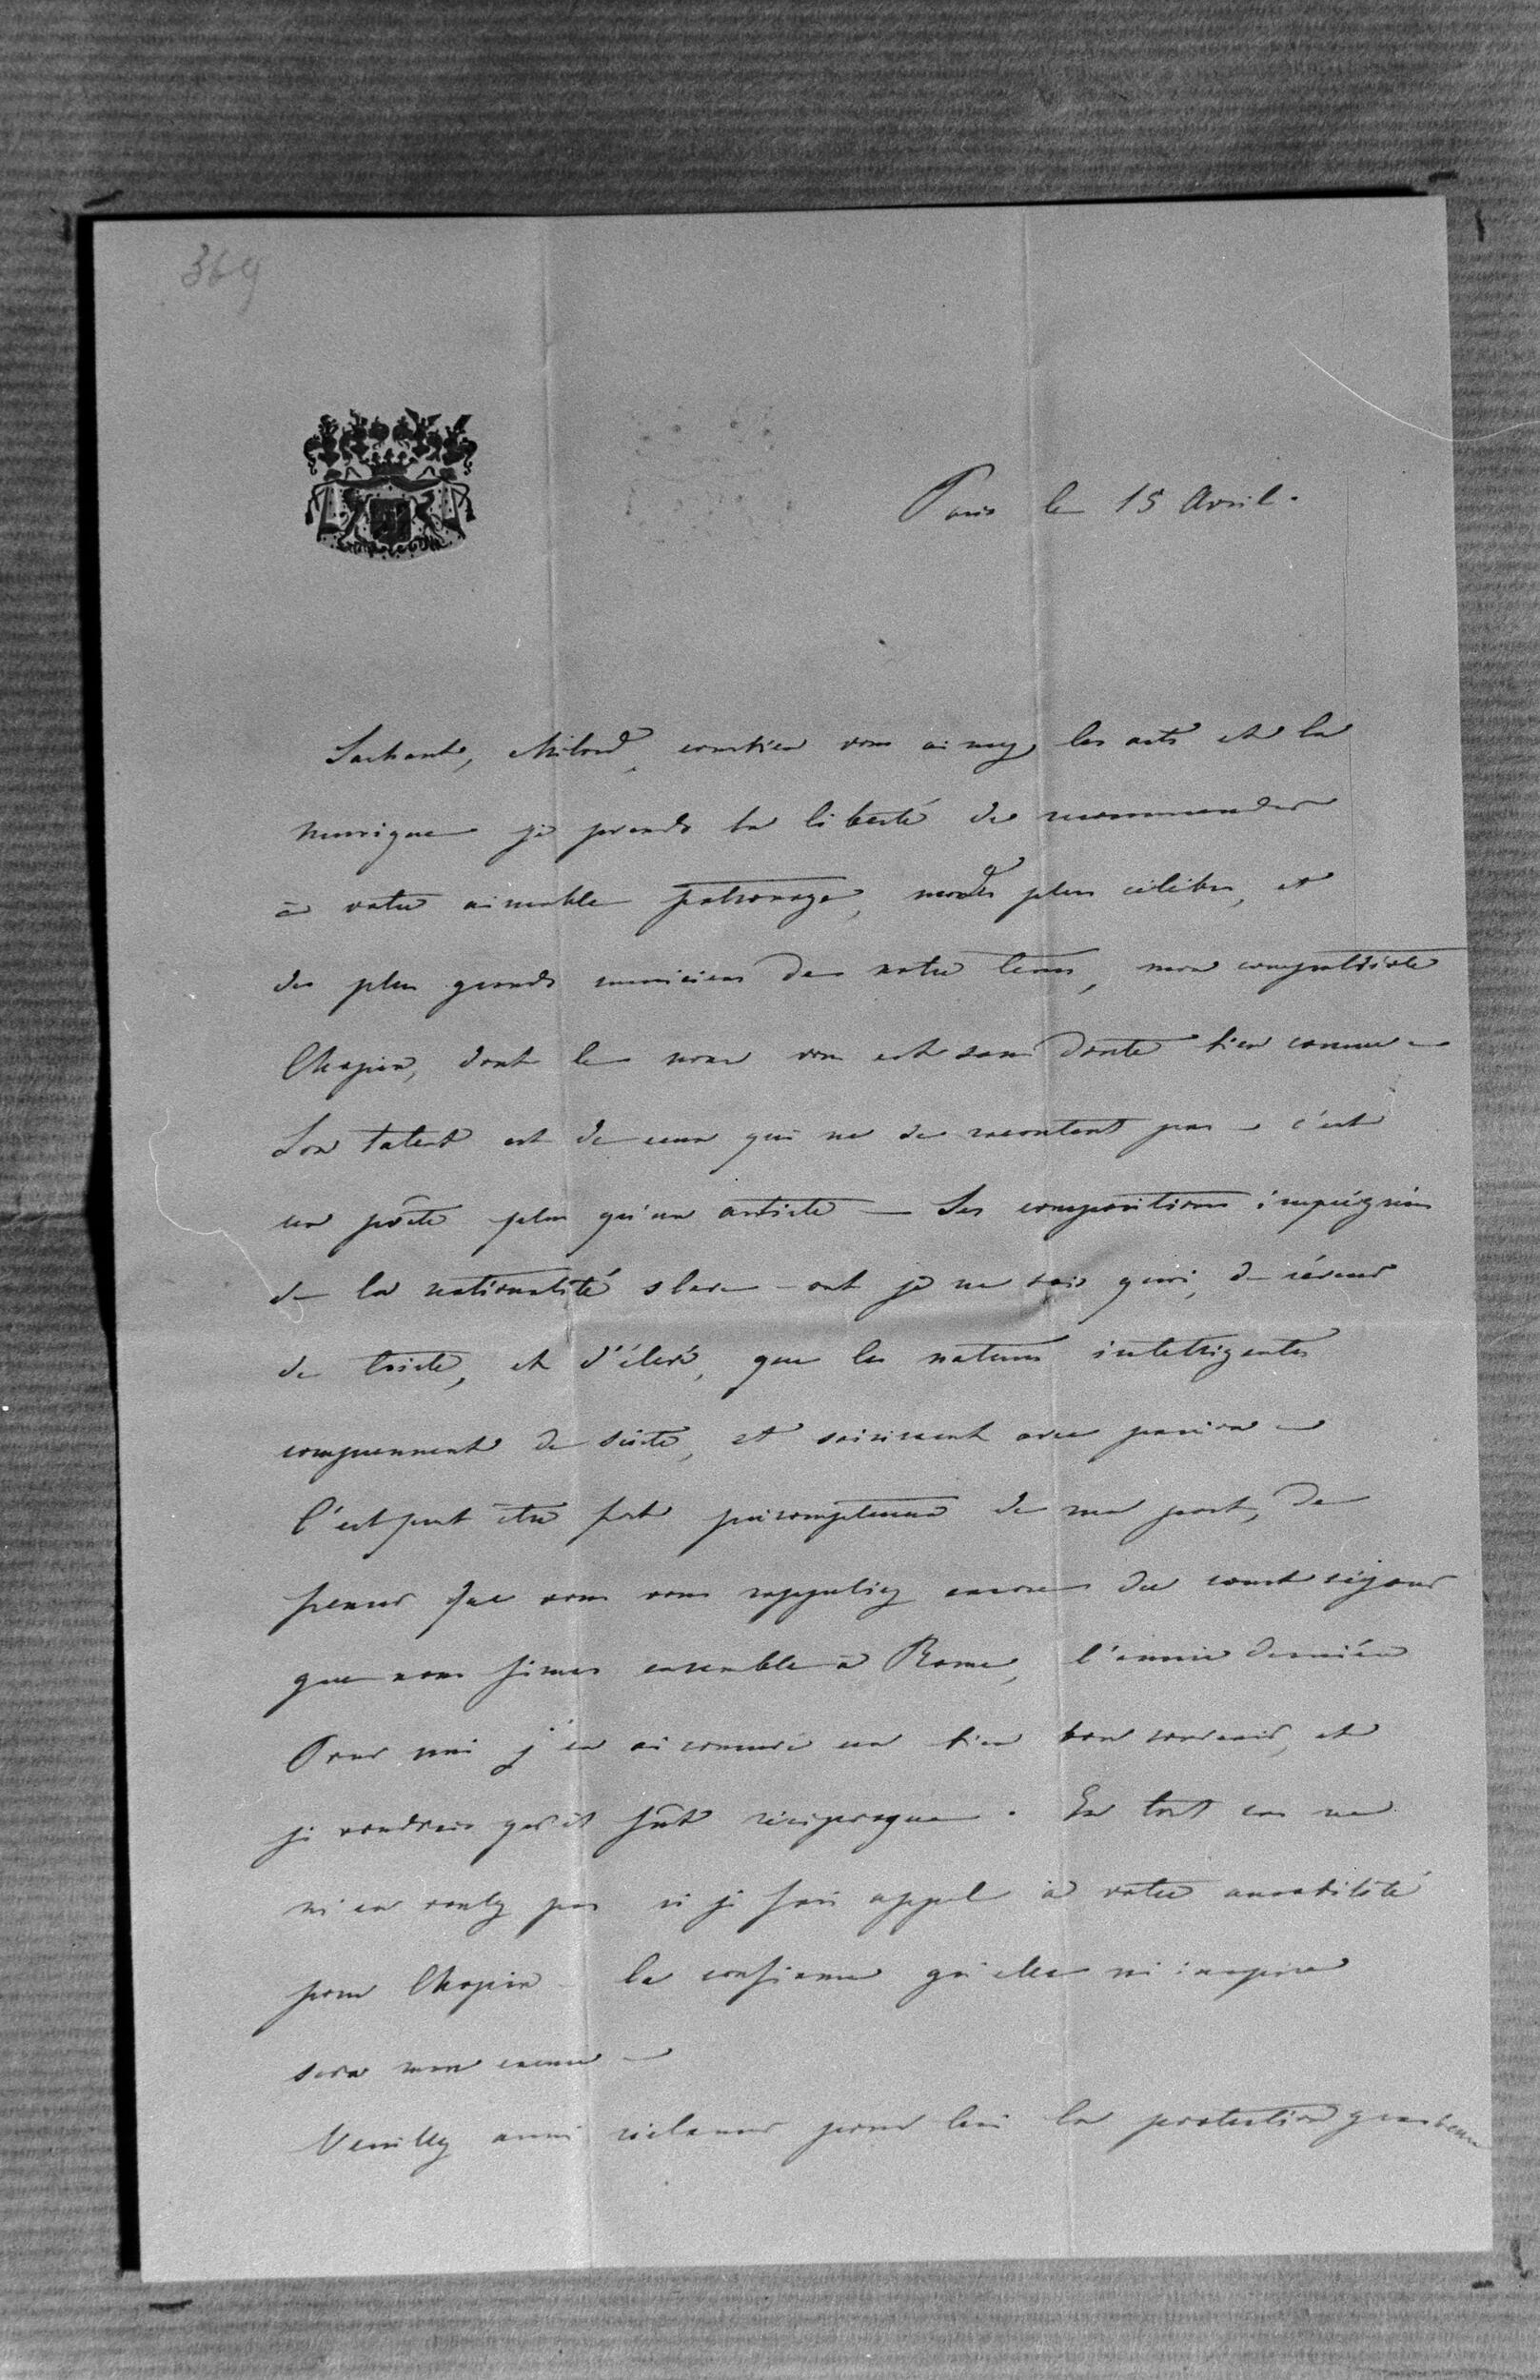 369
Paris le 15 Avril.
Sachant, Milord, combien vous aimez les arts et la
musique je prends la liberté de recommander
à votre aimable patronage, un des plus célèbres, et
des plus grands musiciens de notre tems, mon compatriote
Chopin, dont le nom vous est sans doute bien connu –
Son talent est de ceux qui ne se racontent pas – c'est
un poête plus qu'un artiste – Ses compositions imprégnées
de la nationalité slave – ont je ne sais quoi, de rêveur
de triste, et d'élevé, que les natures intelligentes
comprennent de suite, et saisissent avec passion –
C'est peut être fort présomptueux de ma part, de
penser que vous vous rappeliez encore du court séjour
que nous fimes ensemble à Rome, l'année dernière
Pour moi j'en ai conservé un bien bon souvenir, et
je voudrais qu'il fût réciproque. En tout cas ne
m'en voulez pas si je fais appel à votre amabilité
pour Chopin – la confiance qu'elle m'inspire
sera mon excuse –
Veuillez aussi réclamer pour lui la protection